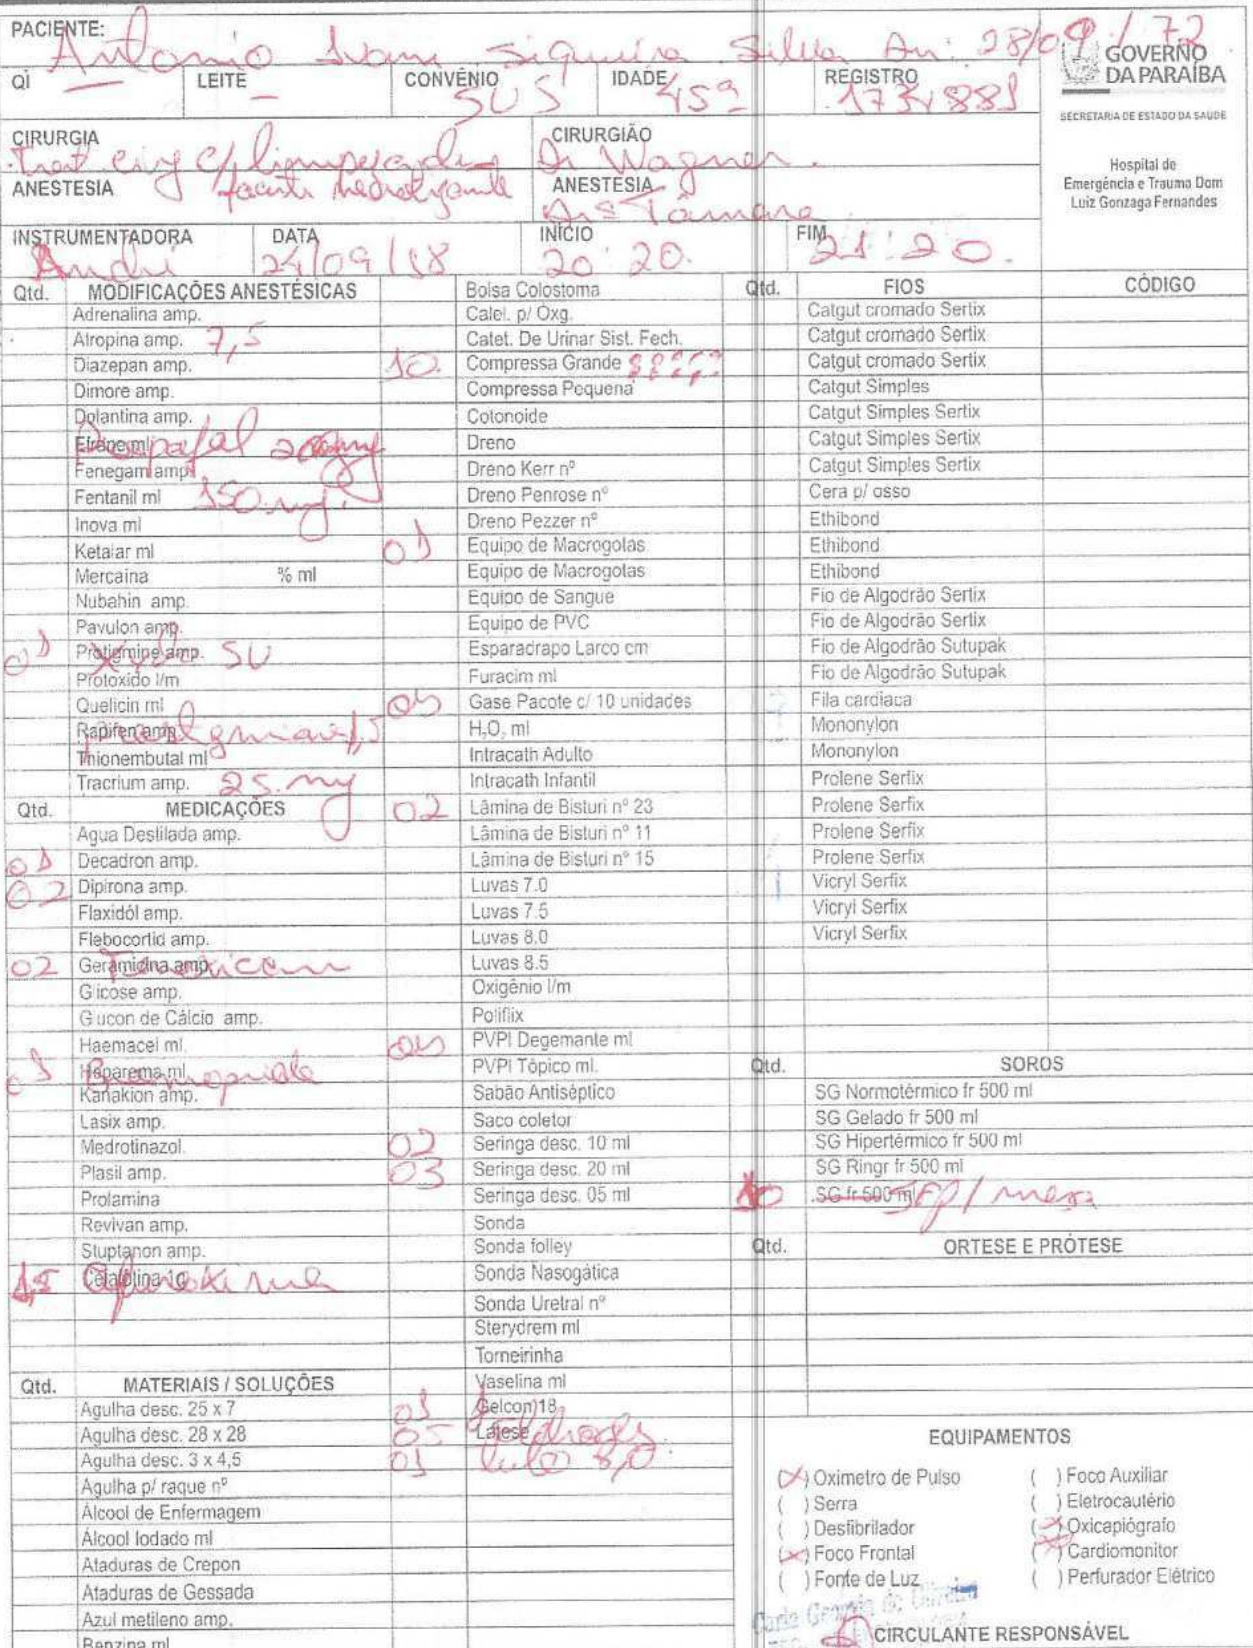 PACIENTE: Antonio Ivam Siqueira Silva An: 28/09/72
GOVERNO DA PARAÍBA
SECRETARIA DE ESTADO DA SAÚDE
Hospital de
Emergência e Trauma Dom
Luiz Gonzaga Fernandes
QI — LEITE — CONVÊNIO SUS IDADE 45a REGISTRO
CIRURGIA Trat cirg c/ CIRURGIÃO Dr Wagner.
ANESTESIA ANESTESIA Drª Tâmara
INSTRUMENTADORA André DATA 24/09/18 INÍCIO 20:20. FIM 21:20.
Qtd. MODIFICAÇÕES ANESTÉSICAS
Adrenalina amp.
Atropina amp. 7,5
Diazepan amp.
Dimore amp.
Dolantina amp.
Efrane ml 200mg
Fenegam amp
Fentanil ml 150 mg.
Inova ml
Ketalar ml
Mercaina % ml
Nubahin amp.
Pavulon amp.
01 Protigmine amp. Xylo SV
Protoxido l/m
Quelicin ml
Rapifen amp.
Thionembutal ml
Tracrium amp. 25 mg
Qtd. MEDICAÇÕES
Agua Destilada amp.
01 Decadron amp.
02 Dipirona amp.
Flaxidól amp.
Flebocortid amp.
02 Geramicina amp. Tenoxicam
Glicose amp.
Glucon de Cálcio amp.
Haemacel ml.
01 Heparema ml. Bromoprida
Kanakion amp.
Lasix amp.
Medrotinazol
Plasil amp.
Prolamina
Revivan amp.
Stuptanon amp.
1,5 Cefalotina 1g
Qtd. MATERIAIS / SOLUÇÕES
Agulha desc. 25 x 7
Agulha desc. 28 x 28
Agulha desc. 3 x 4,5
Agulha p/ raque nº
Álcool de Enfermagem
Álcool Iodado ml
Ataduras de Crepon
Ataduras de Gessada
Azul metileno amp.
Benzina ml
Bolsa Colostoma
Catet. p/ Oxg.
Catet. De Urinar Sist. Fech.
10 Compressa Grande
Compressa Pequena
Cotonoide
Dreno
Dreno Kerr nº
Dreno Penrose nº
Dreno Pezzer nº
01 Equipo de Macrogotas
Equipo de Macrogotas
Equipo de Sangue
Equipo de PVC
Esparadrapo Larco cm
Furacim ml
Gase Pacote c/ 10 unidades
H₂O₂ ml
Intracath Adulto
Intracath Infantil
02 Lâmina de Bisturi nº 23
Lâmina de Bisturi nº 11
Lâmina de Bisturi nº 15
Luvas 7.0
Luvas 7.5
Luvas 8.0
Luvas 8.5
Oxigênio l/m
Poliflix
PVPI Degemante ml
PVPI Tópico ml.
Sabão Antiséptico
Saco coletor
02 Seringa desc. 10 ml
03 Seringa desc. 20 ml
Seringa desc. 05 ml
Sonda
Sonda folley
Sonda Nasogática
Sonda Uretral nº
Sterydrem ml
Torneirinha
Vaselina ml
01 Gelcon 18
05 Latese Eletrodos
01 tubo 8,0
Qtd. FIOS CÓDIGO
Catgut cromado Sertix
Catgut cromado Sertix
Catgut cromado Sertix
Catgut Simples
Catgut Simples Sertix
Catgut Simples Sertix
Catgut Simples Sertix
Cera p/ osso
Ethibond
Ethibond
Ethibond
Fio de Algodrão Sertix
Fio de Algodrão Sertix
Fio de Algodrão Sutupak
Fio de Algodrão Sutupak
Fila cardiaca
Mononylon
Mononylon
Prolene Serfix
Prolene Serfix
Prolene Serfix
Prolene Serfix
Vicryl Serfix
Vicryl Serfix
Vicryl Serfix
Qtd. SOROS
SG Normotérmico fr 500 ml
SG Gelado fr 500 ml
SG Hipertérmico fr 500 ml
SG Ringr fr 500 ml
SG fr 500 ml
Qtd. ORTESE E PRÓTESE
EQUIPAMENTOS
(X) Oximetro de Pulso ( ) Foco Auxiliar
( ) Serra ( ) Eletrocautério
( ) Desfibrilador (X) Oxicapiógrafo
(X) Foco Frontal (X) Cardiomonitor
( ) Fonte de Luz ( ) Perfurador Elétrico
CIRCULANTE RESPONSÁVEL